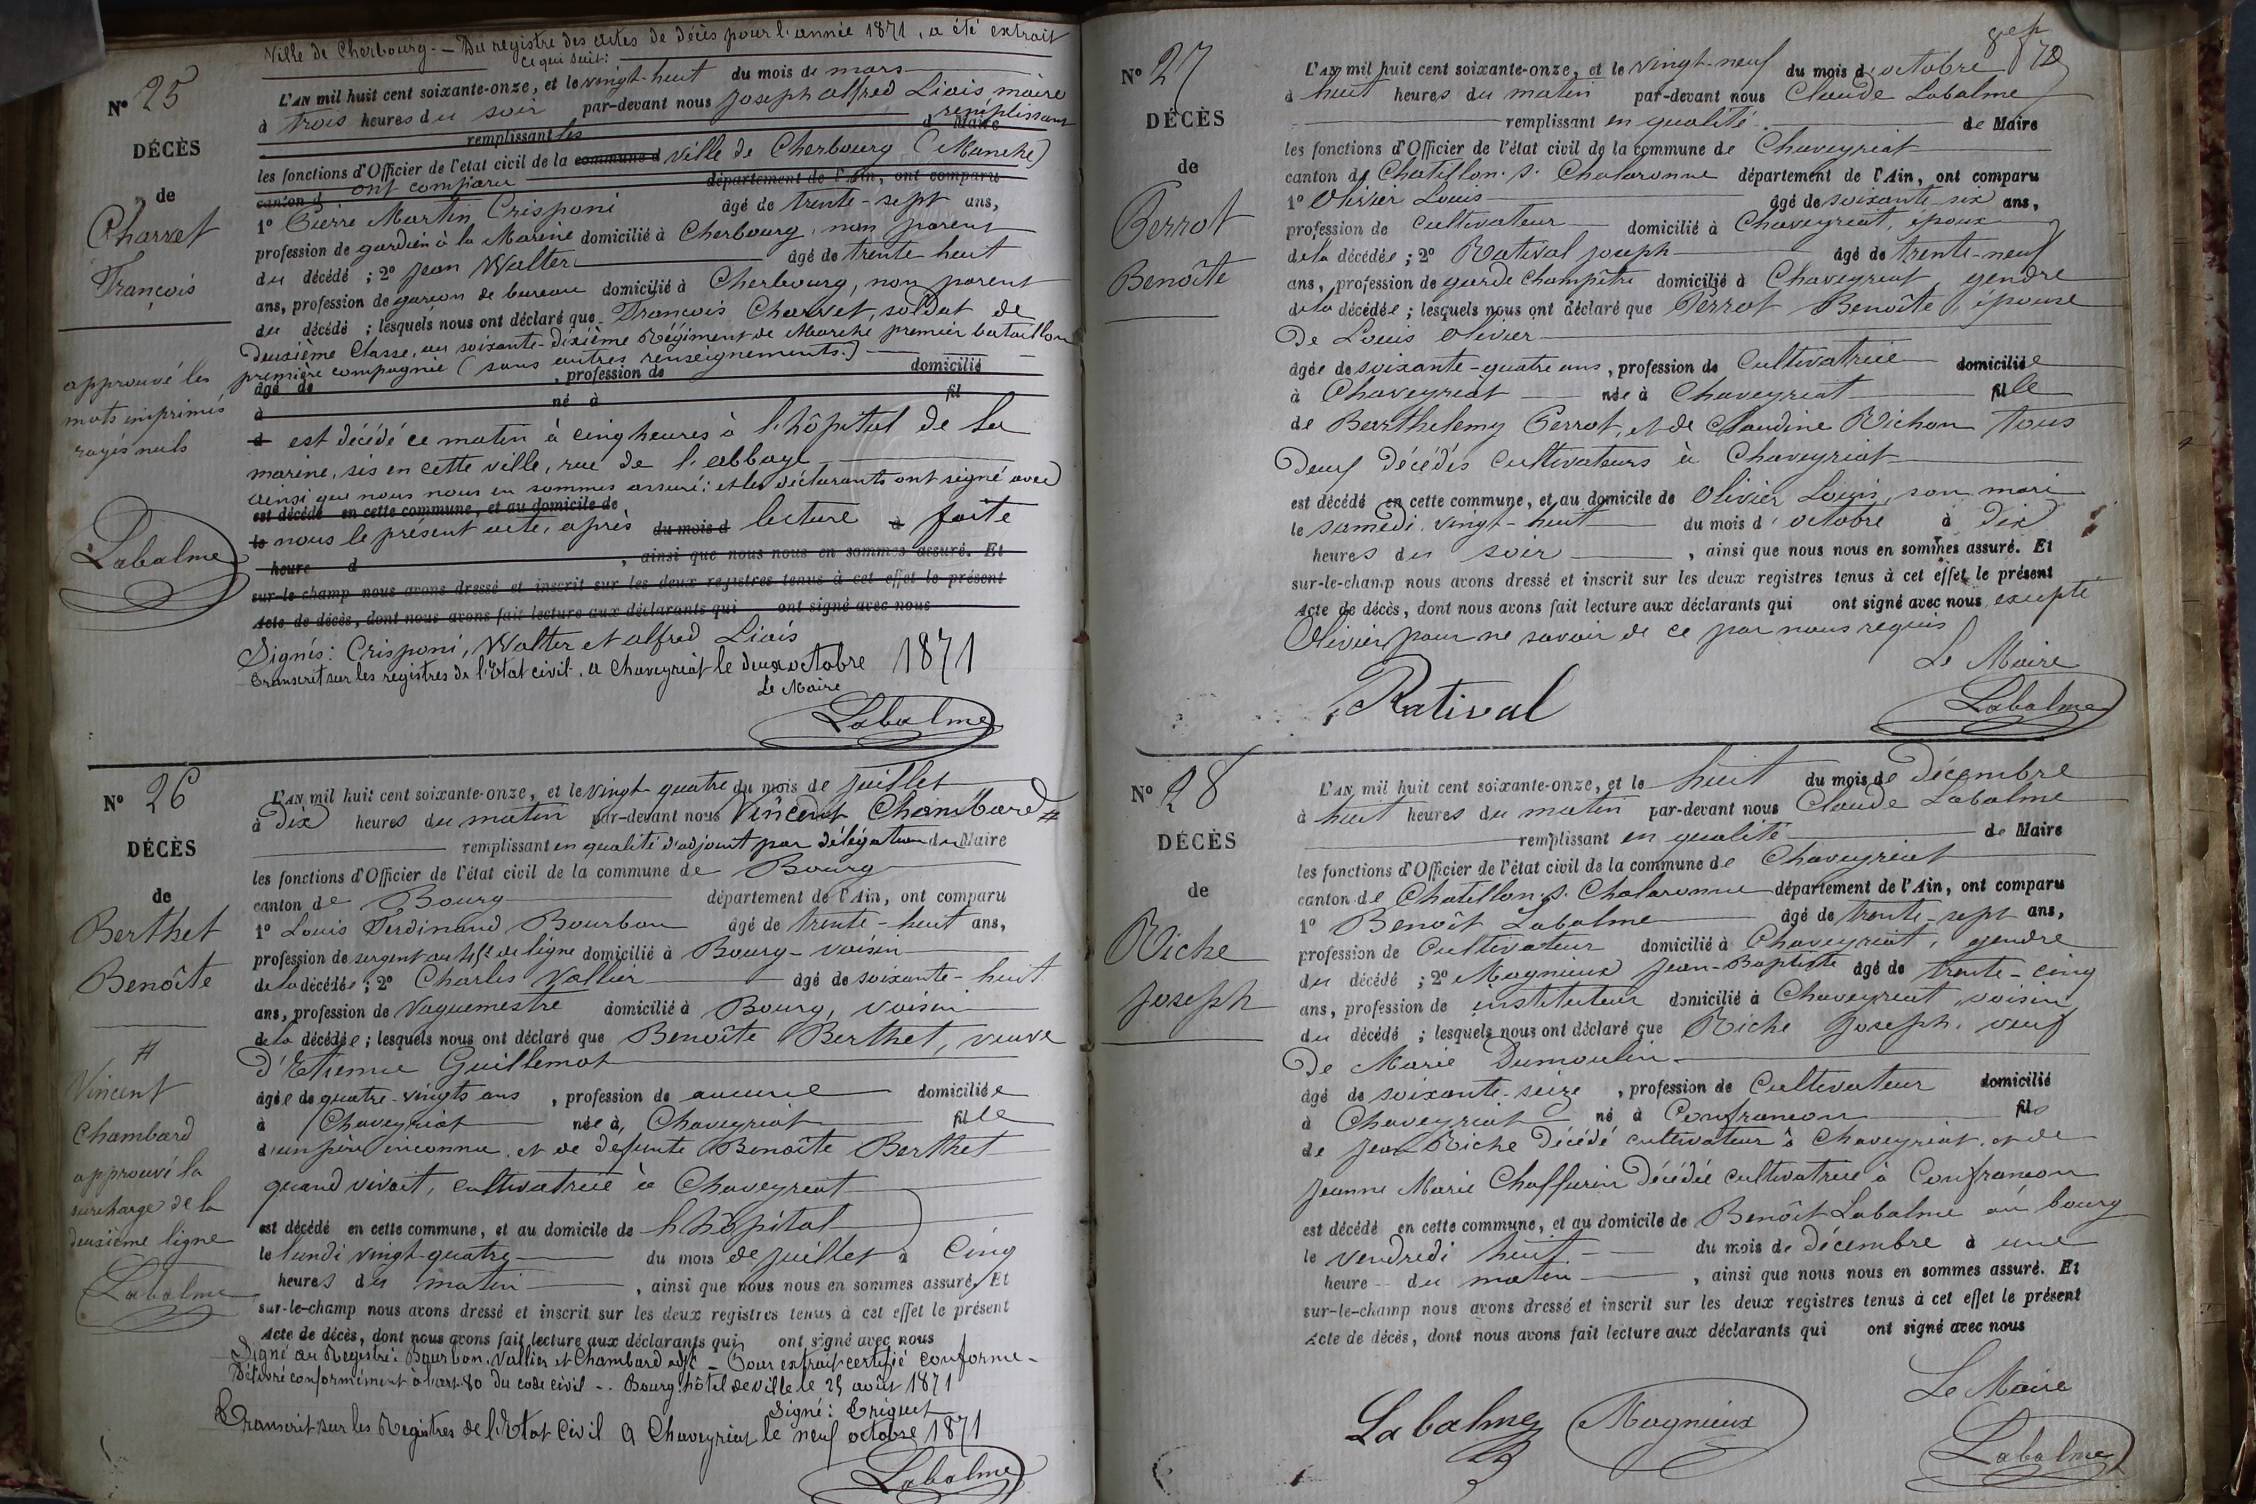 Ville de Cherbourg. — Du registre des actes de décès pour l'année 1871, a été extrait
ce qui suit:
N° 25
DÉCÈS
de
Charvet
François
approuvé les
mots imprimés
rayés nuls
Labalme
L'AN mil huit cent soixante-onze, et le vingt-huit du mois de mars
à trois heures du soir par-devant nous Joseph Alfred Liais maire
remplissant les d Maire remplissant
les fonctions d'Officier de l'état civil de la commune d ville de Cherbourg (Manche)
canton d ont comparu département de l'Ain, ont comparu
1° Pierre Martin Crisponi âgé de trente-sept ans,
profession de gardien à la Marine domicilié à Cherbourg, non parent
du décédé ; 2° Jean Walter âgé de trente huit
ans, profession de garçon de bureau domicilié à Cherbourg, non parent
du décédé ; lesquels nous ont déclaré que François Charvet, soldat de
Deuxième Classe, au soixante-dixième Régiment de Marche premier bataillon
première compagnie (sans autres renseignements.)
âgé de , profession de domicilié
à né à fil
d est décédé ce matin à cinq heures à l'hôpital de la
marine, sis en cette ville, rue de l'abbaye
ainsi que nous nous en sommes assuré; et les déclarants ont signé avec
est décédé en cette commune, et au domicile de
le nous le présent acte, après du mois d lecture à faite
heure d , ainsi que nous nous en sommes assuré. Et
sur-le-champ nous avons dressé et inscrit sur les deux registres tenus à cet effet le présent
Acte de décès, dont nous avons fait lecture aux déclarants qui ont signé avec nous
Signés: Crisponi, Walter et Alfred Liais
Transcrit sur les registres de l'Etat civil. A Chaveyriat le deux octobre 1871
Le Maire
Labalme
N° 26
DÉCÈS
de
Berthet
Benoîte
#
Vincent
Chambard
approuvé la
surcharge de la
deuxième ligne
Labalme
L'AN mil huit cent soixante-onze, et le vingt quatre du mois de juillet
à dix heures du matin par-devant nous Vincent Chambard #
remplissant en qualité d'adjoint par délégation du Maire
les fonctions d'Officier de l'état civil de la commune de Bourg
canton de Bourg département de l'Ain, ont comparu
1° Louis Ferdinand Bourbon âgé de trente-huit ans,
profession de sergent au de ligne domicilié à Bourg - voisin
de la décédée ; 2° Charles Vallier âgé de soixante-huit
ans, profession de Vaguemestre domicilié à Bourg, voisin
de la décédée ; lesquels nous ont déclaré que Benoîte Berthet, veuve
d'Etienne Guillemot
âgée de quatre-vingts ans , profession de aucune domiciliée
à Chaveyriat née à Chaveyriat fille
d'un père inconnu, et de défunte Benoîte Berthet
quand vivait, cultivatrice à Chaveyriat
est décédé en cette commune, et au domicile de l'hôpital
le lundi vingt-quatre du mois de juillet à cinq
heures du matin , ainsi que nous nous en sommes assuré. Et
sur-le-champ nous avons dressé et inscrit sur les deux registres tenus à cet effet le présent
Acte de décès, dont nous avons fait lecture aux déclarants qui ont signé avec nous
Signé au Registre: Bourbon, Vallier et Chambard adjt — Pour extrait certifié conforme -
Délivré conformément à l'art. 80 du code civil - . Bourg hôtel de ville le 25 août 1871
Signé:
Transcrit sur les Registres de l'Etat Civil A Chaveyriat le neuf octobre 1871
Labalme
N° 27
DÉCÈS
de
Perrot
Benoîte
L'AN mil huit cent soixante-onze, et le vingt-neuf du mois d'octobre
à huit heures du matin par-devant nous Claude Labalme
remplissant en qualité de Maire
les fonctions d'Officier de l'état civil de la commune de Chaveyriat
canton de Chatillon. s. Chalaronne département de l'Ain, ont comparu
1° Olivier Louis âgé de soixante-six ans,
profession de Cultivateur domicilié à Chaveyriat, époux
de la décédée ; 2° Ratival Joseph âgé de trente-neuf
ans, profession de garde Champêtre domicilié à Chaveyriat, gendre
de la décédée ; lesquels nous ont déclaré que Perrot Benoîte, épouse
De Louis Olivier
âgée de soixante-quatre ans , profession de Cultivatrice domiciliée
à Chaveyriat née à Chaveyriat fille
de Barthelemy Perrot, et de Claudine Richon tous
Deux décédés cultivateurs à Chaveyriat
est décédé en cette commune, et au domicile de Olivier Louis, son mari
le samedi vingt-huit du mois d'octobre à dix
heures du soir , ainsi que nous nous en sommes assuré. Et
sur-le-champ nous avons dressé et inscrit sur les deux registres tenus à cet effet le présent
Acte de décès, dont nous avons fait lecture aux déclarants qui ont signé avec nous, excepté
Olivier pour ne savoir de ce par nous requis
Le Maire
Ratival
Labalme
N° 28
DÉCÈS
de
Riche
Joseph
L'AN mil huit cent soixante-onze, et le huit du mois de Décembre
à huit heures du matin par-devant nous Claude Labalme
remplissant en qualité de Maire
les fonctions d'Officier de l'état civil de la commune de Chaveyriat
canton de Chatillon. s. Chalaronne département de l'Ain, ont comparu
1° Benoît Labalme âgé de trente-sept ans,
profession de Cultivateur domicilié à Chaveyriat, gendre
du décédé ; 2° Magnieux Jean-Baptiste âgé de trente-cinq
ans, profession de instituteur domicilié à Chaveyriat voisin
du décédé ; lesquels nous ont déclaré que Riche Joseph, veuf
De Marie Dumoulin
âgé de soixante-seize , profession de Cultivateur domicilié
à Chaveyriat né à Confrancon fils
de Jean Riche Décédé cultivateur à Chaveyriat, et de
Jeanne Marie Chaffurin Décédée cultivatrice à Confrancon
est décédé en cette commune, et au domicile de Benoît Labalme au bourg
le vendredi huit du mois de décembre à une
heure du matin , ainsi que nous nous en sommes assuré. Et
sur-le-champ nous avons dressé et inscrit sur les deux registres tenus à cet effet le présent
Acte de décès, dont nous avons fait lecture aux déclarants qui ont signé avec nous
Le Maire
Labalme Magnieux
Labalme